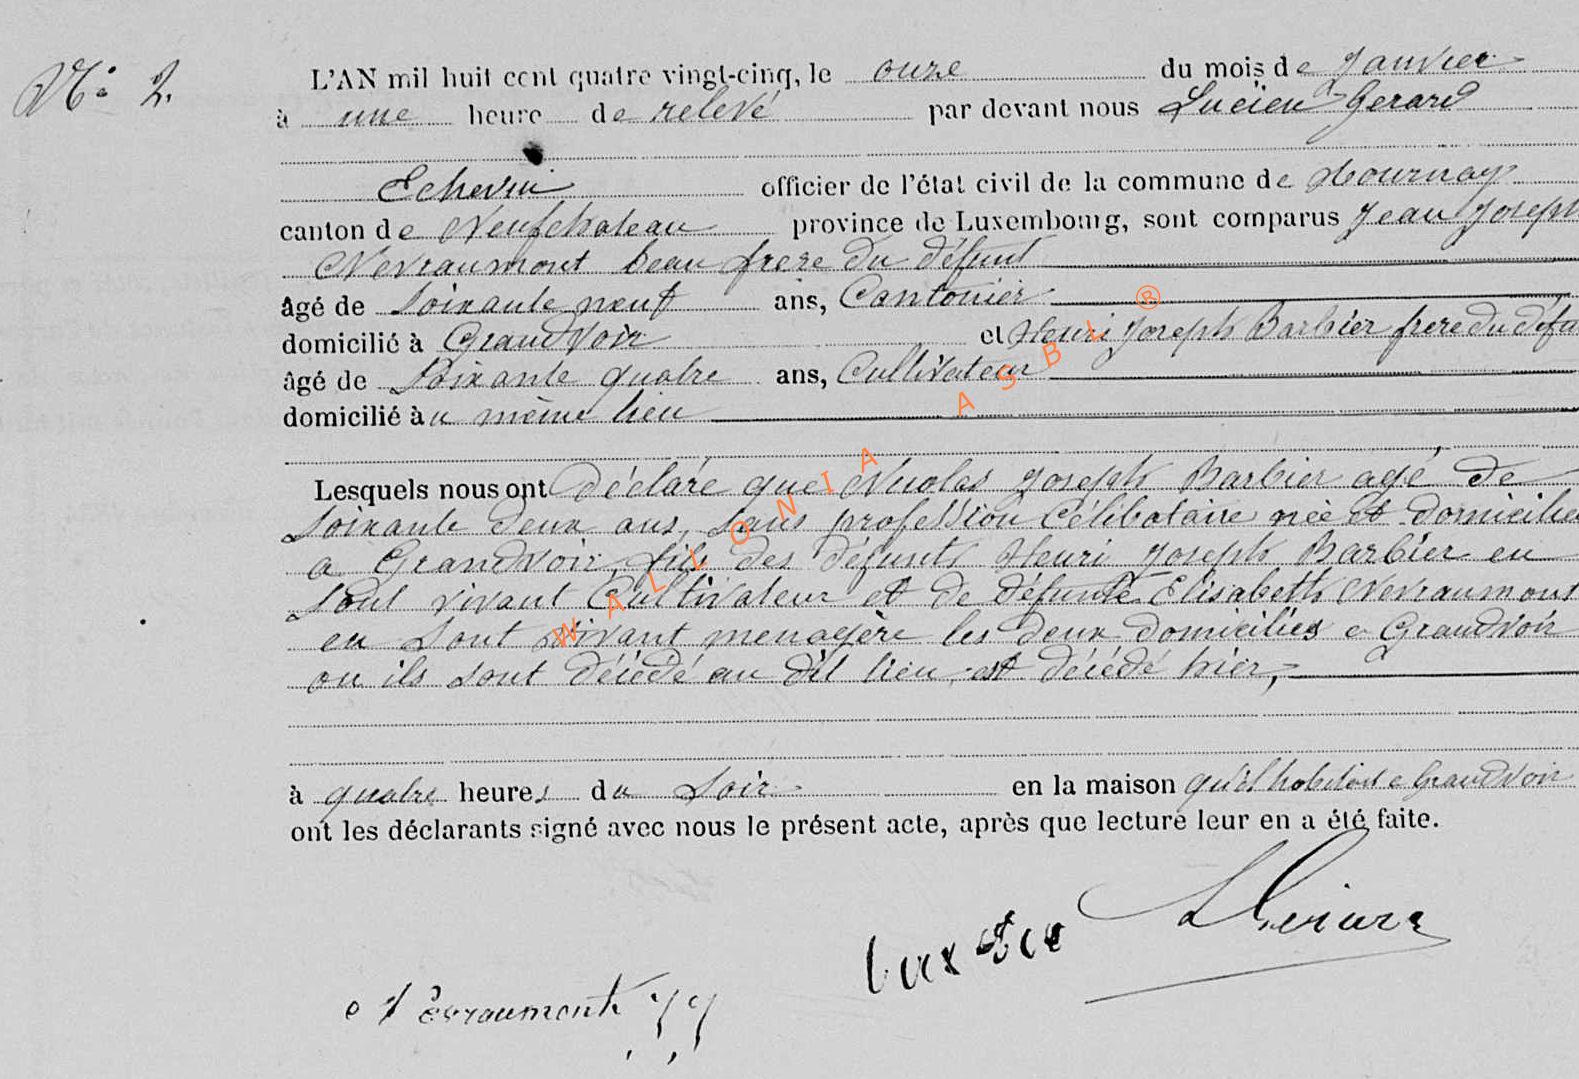 N° 2.
L'AN mil huit cent quatre vingt-cinq, le onze du mois de Janvier
à une heure de relevé par devant nous Lucien Gerard
Echevin officier de l'état civil de la commune de Tournay
canton de Neufchateau province de Luxembourg, sont comparus Jean Joseph
Nevraumont beau frere du défunt
âgé de soixante neuf ans, Cantonier
domicilié à Grandvoir et Henri Joseph Barbier frere du défu
âgé de Soixante quatre ans, Cultivateur
domicilié au même lieu
Lesquels nous ont déclaré que Nicolas Joseph Barbier agé de
soixante deux ans, sans profession Célibataire née et domicilié
a Grandvoir, fils des défunts Henri Joseph Barbier en
sont vivant Cultivateur et de défunte Elisabeth Nevraumont
en sont vivant menagère les deux domiciliés a Grandvoir
ou ils sont décédé au dit lieu, est décédé hier,
à quatre heures du soir en la maison qu'il habitait a Grandvoir
ont les déclarants signé avec nous le présent acte, après que lecture leur en a été faite.
Nevraumont JJ
WALLONIA ASBL ®